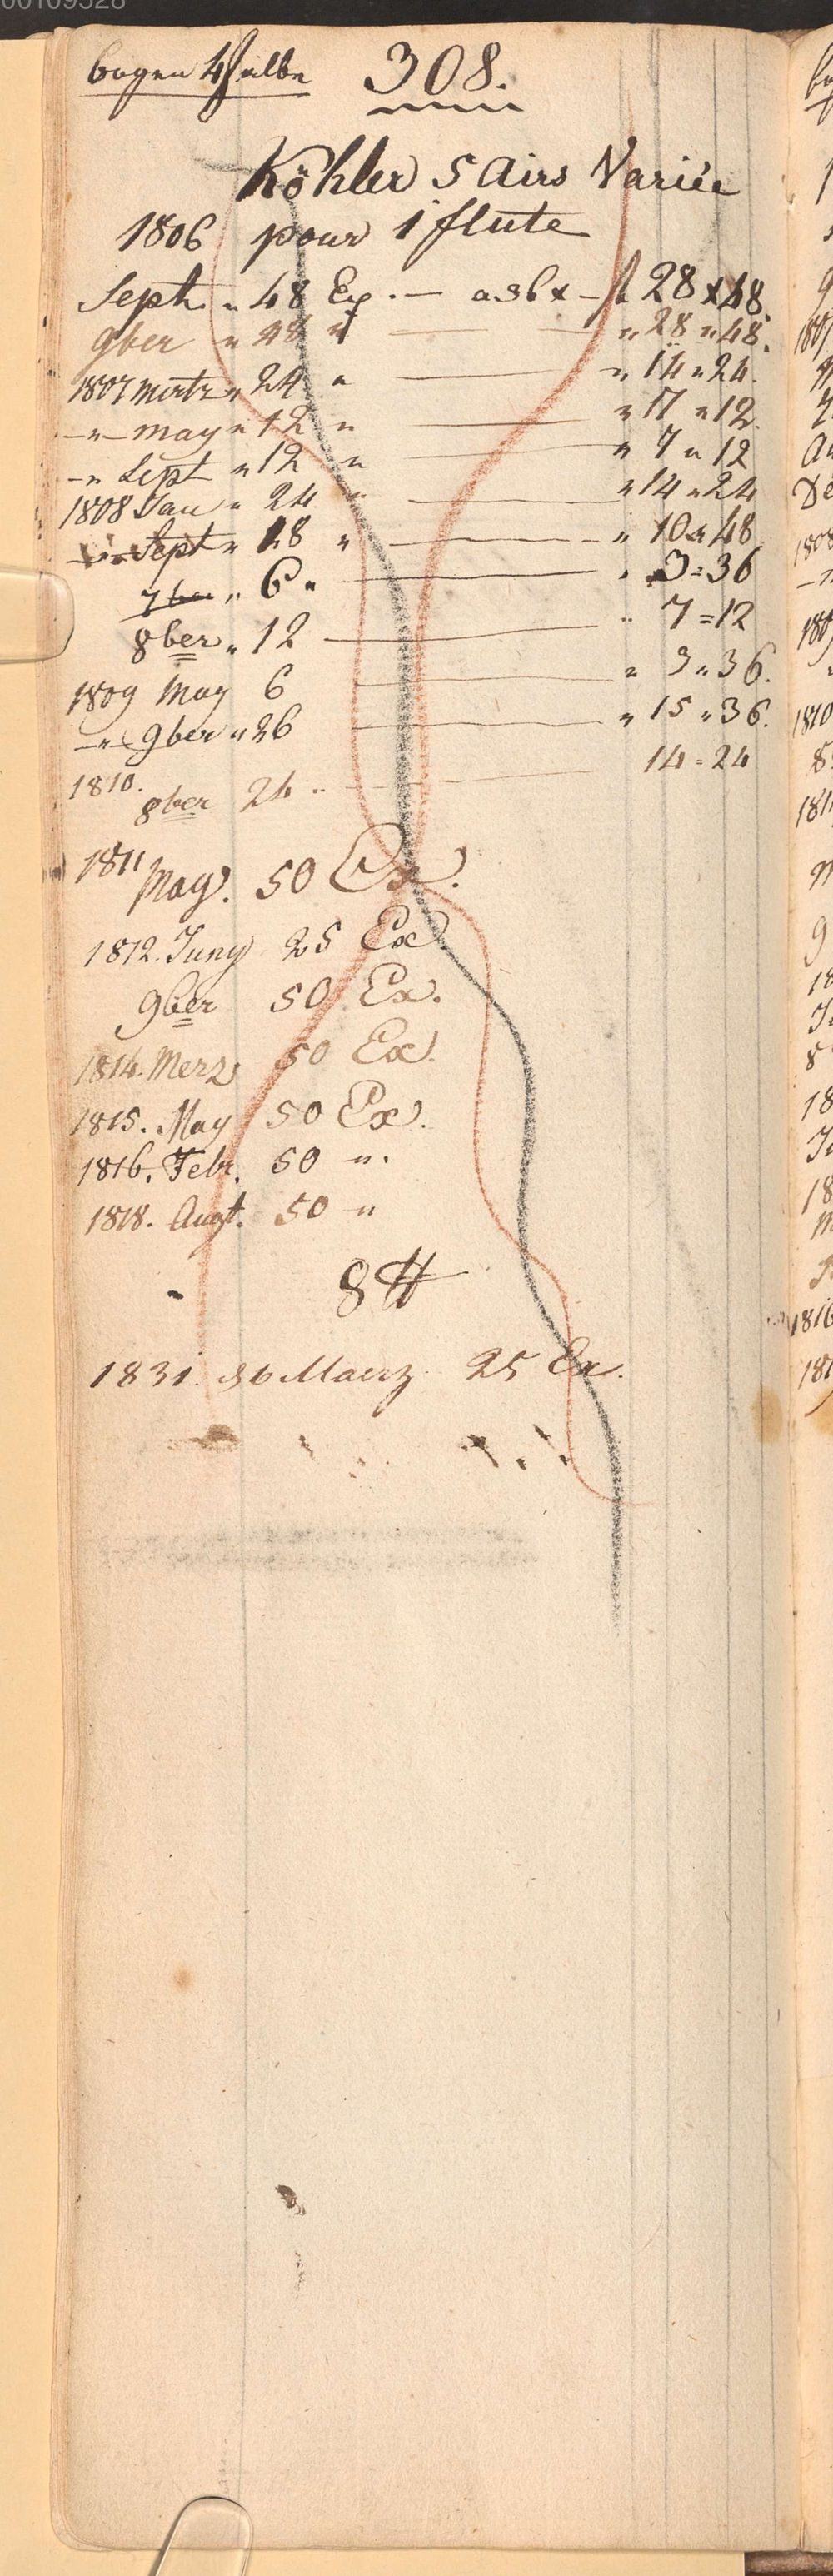 00109528
bogen 4 halbe 308.
Köhler 5 Airs Variée
1806 pour 1 flûte
Sept. " 48 Ex. — a 36 x — f 28 x 48.
9ber " 48 " — " 28 " 48.
1807 Mertz " 24 " — " 14 " 24.
— " — may " 12 " — " 17 " 12
— " Sept " 12 " — " 7 " 12
1808 Jan " 24 " — " 14 " 24
— " Sept " 18 " — " 10 " 48
7ber " 6 " — " 3 = 36
8ber " 12 — " 7 = 12
1809 May 6 — " 3 " 36.
— " — 9ber " 26 — " 15 " 36.
1810. 8ber 24 " — 14 = 24
1811 May. 50 Ex.
1812. Juny 25 Ex.
9ber 50 Ex.
1814. Merz 50 Ex.
1815. May 50 Ex.
1816. Febr. 50 ".
1818. Augt. 50 "
8 #
1831. 26 Maerz 25 Ex.